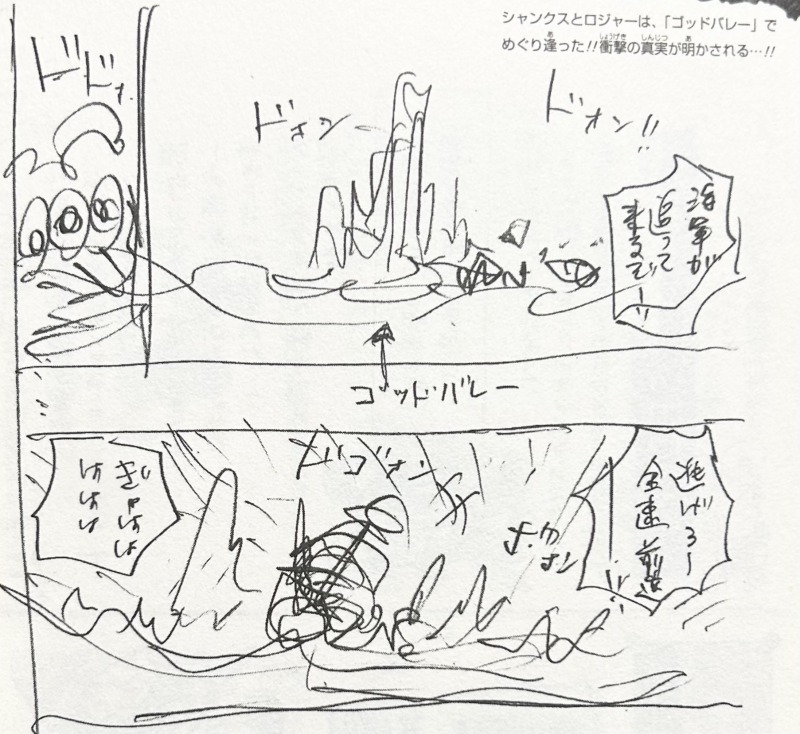 シャンクスとロジャーは、「ゴッドバレー」で
めぐり逢った!!衝撃の真実が明かされる…!!
ドォン!!
海軍が
追って
来るぞ
ドォン
ドド
ゴッドバレー
逃げろー
全速前進
ドゴォン
ぎゃはは
ははは